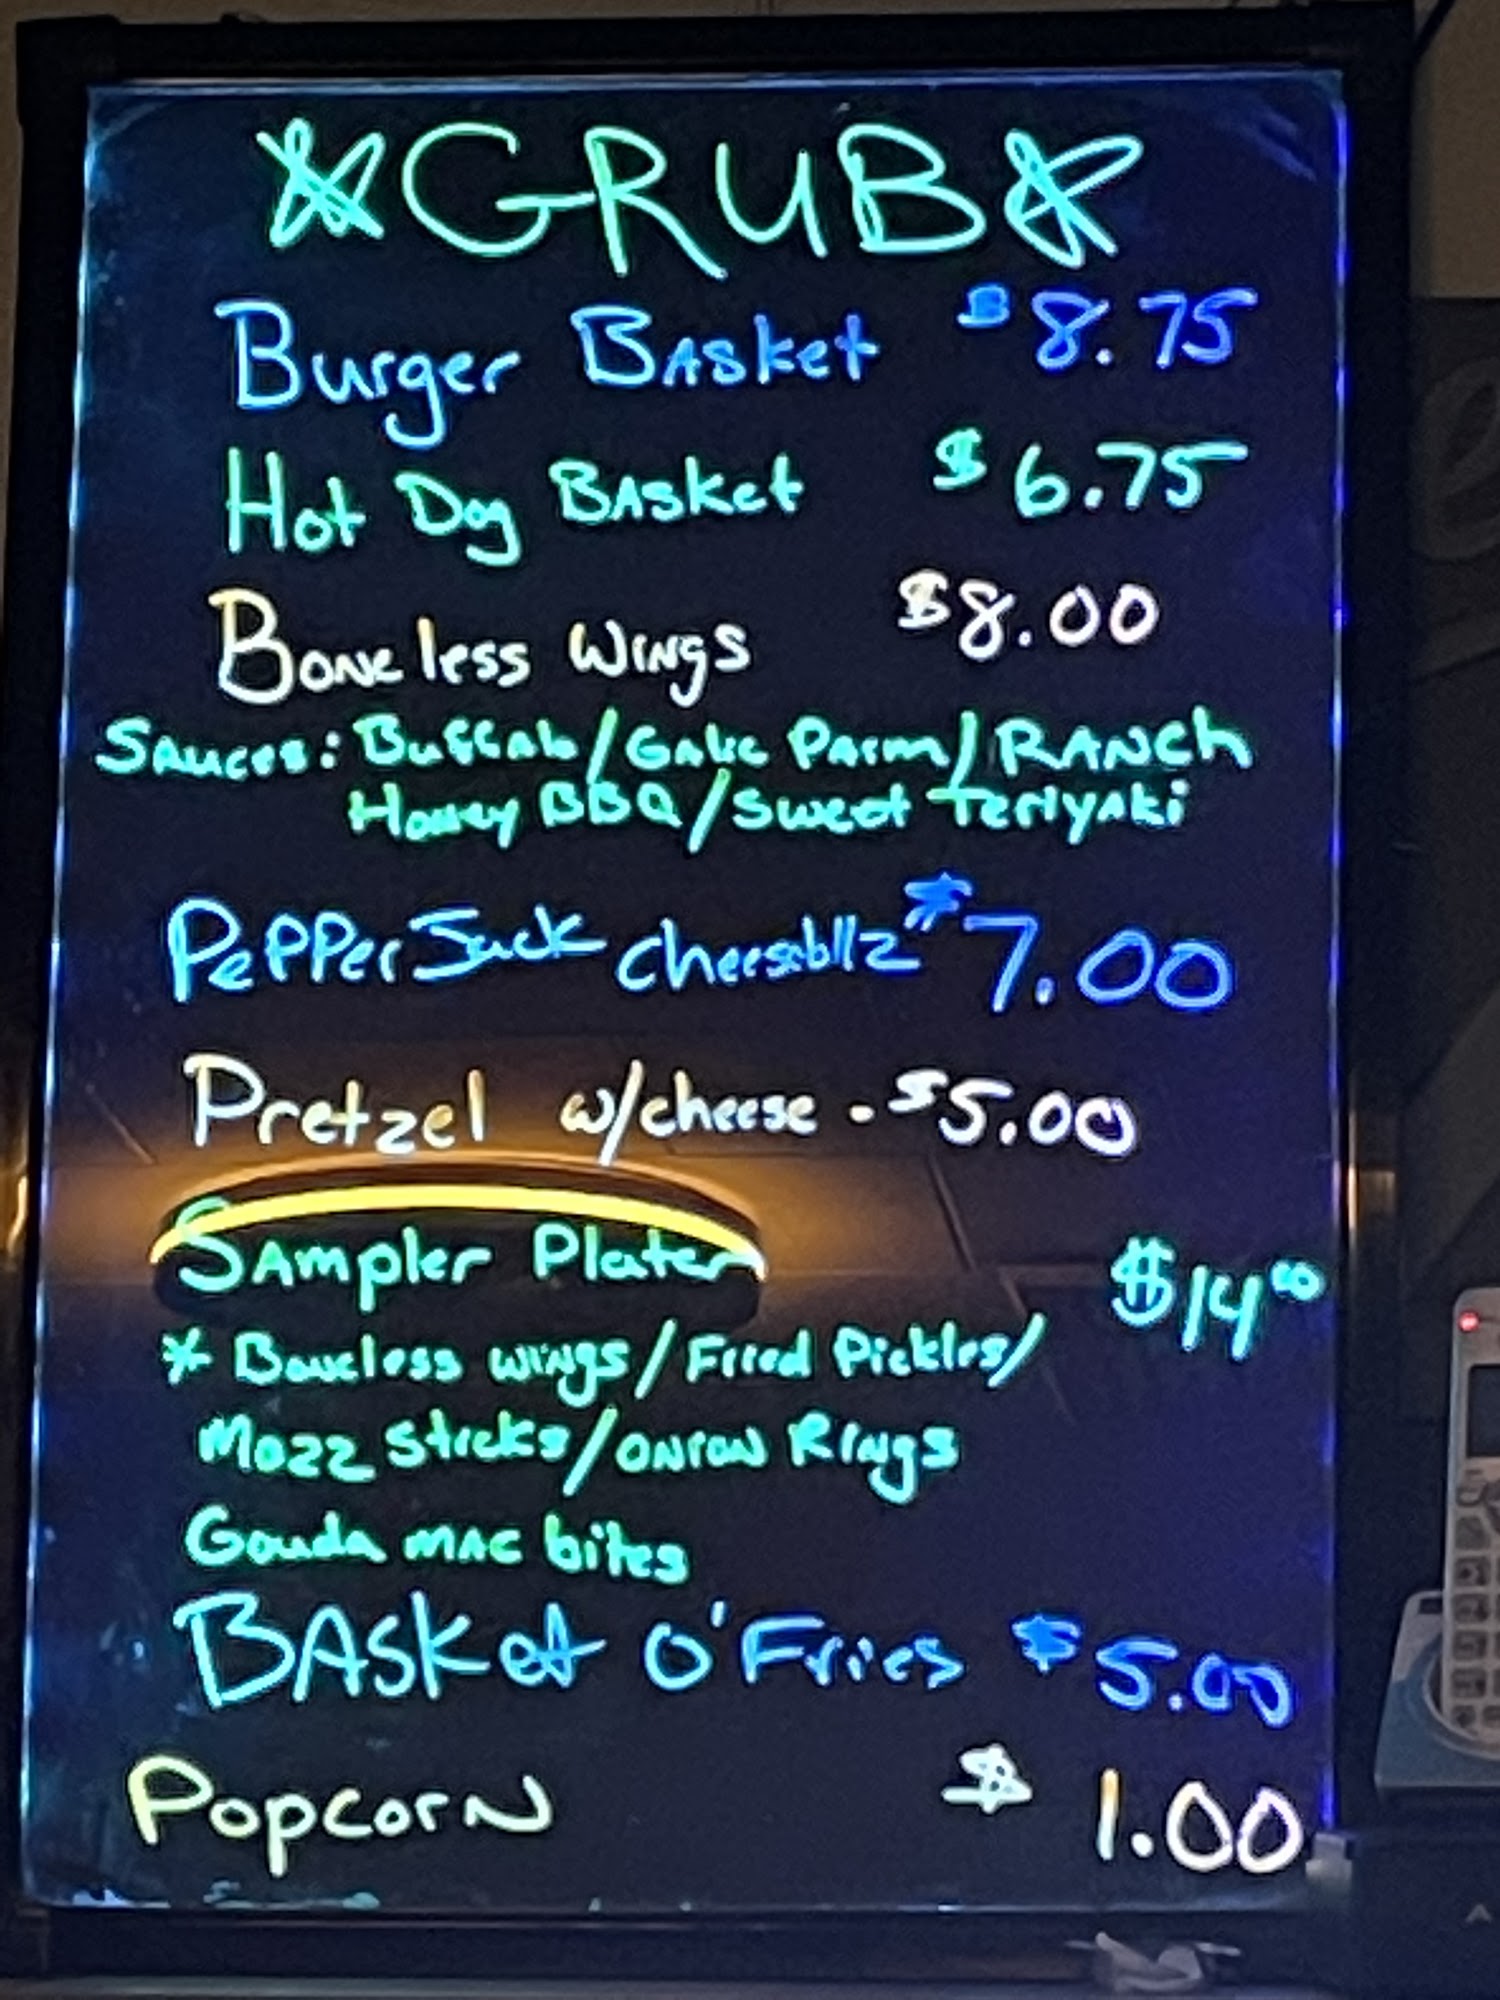 GRUB
Burger Basket $8.75
Hot Dog Basket $6.75
Boneless Wings $8.00
Sauces: Buffalo/Galic Parm/RANCh
Honey BBQ/Sweet Teriyaki
Pepper Jack cheesebllz $7.00
Pretzel w/cheese - $5.00
Sampler Plater $14.00
* Boneless wings/Fried Pickles/
Mozz Sticks/onion Rings
Gouda mac bites
Basket O'Fries $5.00
Popcorn $1.00